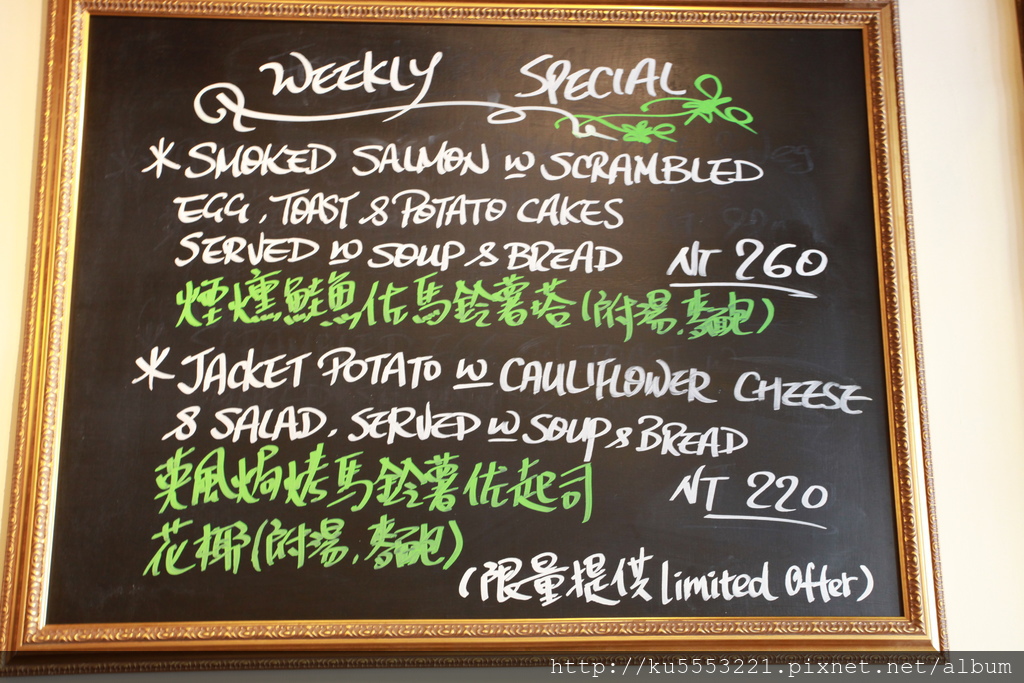 WEEKLY SPECIAL
* SMOKED SALMON w SCRAMBLED
EGG, TOAST & POTATO CAKES
SERVED w SOUP & BREAD NT 260
煙燻鮭魚佐馬鈴薯塔(附湯,麵包)
* JACKET POTATO w CAULIFLOWER CHEESE
& SALAD, SERVED w SOUP & BREAD
英風焗烤馬鈴薯佐起司 NT 220
花椰(附湯,麵包)
(限量提供 limited Offer)
http://ku5553221.pixnet.net/album